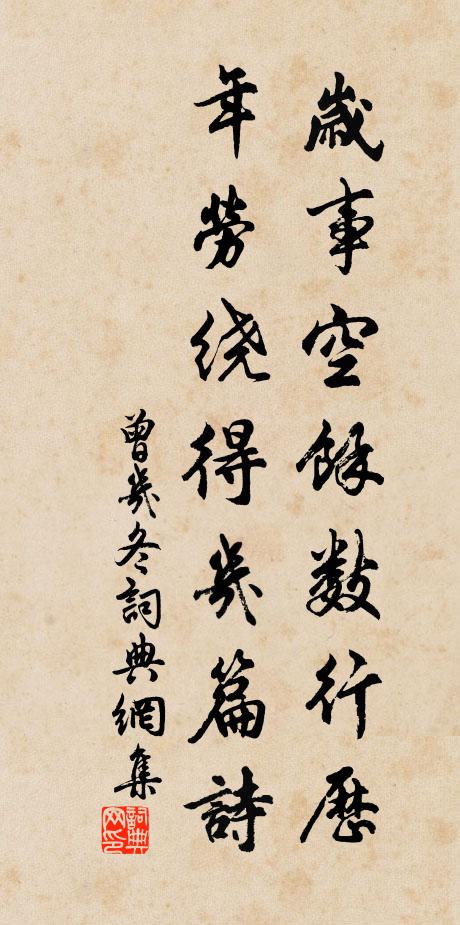 歲事空餘數行曆
年勞繞得幾篇詩
曾幾冬詞典網集
詞典网印